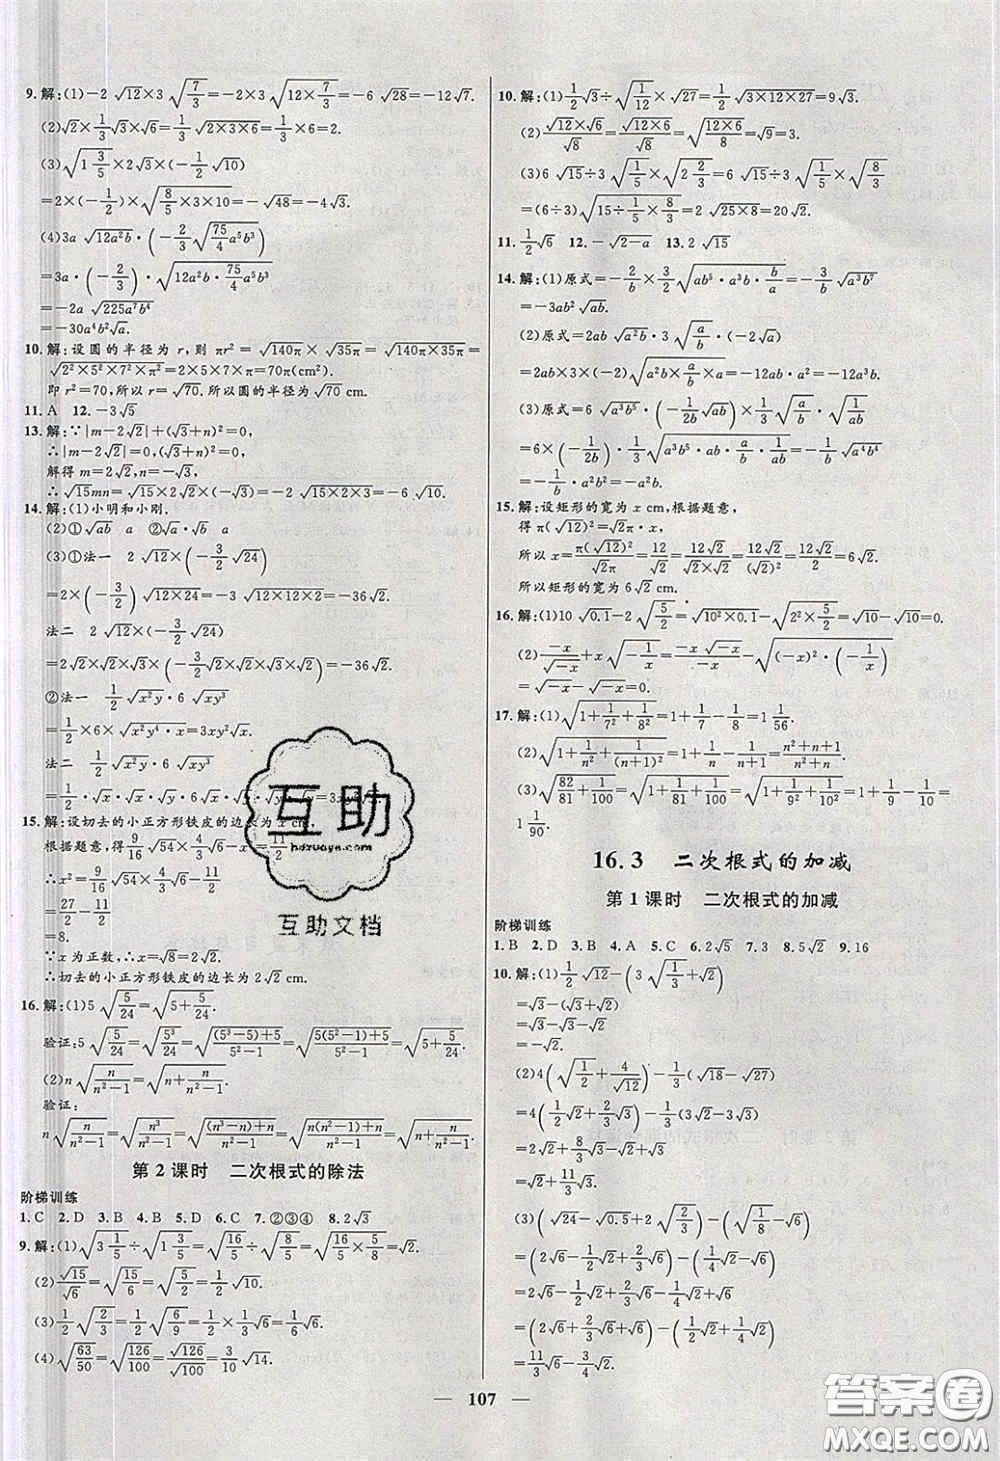 9.解:(1)-2√12×3√(7/3)=-2×3√(12×7/3)=-6√28=-12√7.
(2)√2×1/3√3×√6=1/3√(2×3×6)=1/3×6=2.
(3)√(1 3/5)×2√3×(-1/2√10)
=2×(-1/2)×√(8/5×3×10)=-√48=-4√3.
(4)3a√(12a²b)·(-2/3√(75/4a⁵b³))
=3a·(-2/3)·√(12a²b·75/4a⁵b³)
=-2a√(225a⁷b⁴)
=-30a⁴b²√a.
10.解:设圆的半径为r,则πr²=√140π×√35π=√(140π×35π)=
√(2²×5²×7²×π²)=2×5×7×π=70π(cm²).
即r²=70,所以r=√70.所以圆的半径为√70 cm.
11.A 12.-3√5
13.解:∵|m-2√2|+(√3+n)²=0,
∴|m-2√2|=0,(√3+n)²=0,
解得m=2√2,n=-√3,
∴√15mn=√15×2√2×(-√3)=-2√(15×2×3)=-6√10.
14.解:(1)小明和小刚.
(2)①√ab a ②√a·√b a
(3)①法一 2√12×(-3/2√24)
=2×(-3/2)√(12×24)=-3√(12×12×2)=-36√2.
法二 2√12×(-3/2√24)
=2√2×√2×√3×(-3/2×√2×√2×√2×√3)=-36√2.
②法一 1/2√(x²y)·6√(xy³)
=1/2×6×√(x²y⁴·x)=3xy²√x.
法二 1/2√(x²y)·6√(xy³)
=1/2·√x·√x·√y·6·√x·√y·√y·√y=3xy²√x.
15.解:设切去的小正方形铁皮的边长为x cm,
根据题意,得9/16√54×√24-x²=
∴x²=9/16×√54×√24-
=27/2-11/2
=8.
∵x为正数,∴x=√8=2√2.
∴切去的小正方形铁皮的边长为2√2 cm.
16.解:(1)5√(5/24)=√(5+5/24).
验证:5√(5/24)=√(5³/24)=√(((5³-5)+5)/(5²-1))=√((5(5²-1)+5)/(5²-1))=√(5+5/24).
(2)n√(n/(n²-1))=√(n+n/(n²-1)).
验证:
n√(n/(n²-1))=√(n³/(n²-1))=√(((n³-n)+n)/(n²-1))=√((n(n²-1)+n)/(n²-1))=√(n+n/(n²-1)).
第2课时 二次根式的除法
阶梯训练
1.C 2.D 3.B 4.B 5.D 6.C 7.②③④ 8.2√3
9.解:(1)√(3 1/5)÷√(1 3/5)=√(16/5)÷√(8/5)=√(16/5×5/8)=√2.
(2)√15/√6=√(15/6)=√(5/2)=1/2√10.
(3)1/2√(2/3)=1/2√(6/9)=1/2×1/3×√6=1/6√6.
(4)√(63/50)=√(126/100)=√126/√100=3/10√14.
10.解:(1)1/2√3÷√(1/12)×√27=1/2√(3×12×27)=9√3.
(2)(√12×√6)/√8=√(12×6)/√8=√((12×6)/8)=√9=3.
(3)6√15÷3√(1/5)×√(8/3)
=(6÷3)√(15÷1/5×8/3)=2√(25×8)=20√2.
11.1/2√6 12.-√(2-a) 13.2√15
14.解:(1)原式=-2/b×3/2×√(ab⁵·a³b·a/b)=-3/b√(a³b⁷)
=-3ab²√ab.
(2)原式=2ab√b·3√(a/b)·(-2√(1/a))
=2ab×3×(-2)√(b×a/b×1/a)=-12ab.
(3)原式=6√(a³b⁵)·(-1/2b√ab)×√(a/b)
=6×(-1/2b)·1/3√(a³b⁵·ab·a/b)=-1/b√(a⁴b⁴)
=-1/b·a²b²=-a²b.
15.解:设矩形的宽为x cm,根据题意,
得π(√12)²=√2π·x,
所以x=π(√12)²/√2π=12/√2=12√2/√2×√2=12√2/(√2)²=12√2/2=6√2.
所以矩形的宽为6√2 cm.
16.解:(1)10√0.1-2√(5/2)=√(10²×0.1)-√(2²×5/2)=√10-√10=0.
(2)-x/√-x+x√(-1/x)=(-x√-x)/(-x)-√((-x)²·(-1/x))
=√-x-√-x=0.
17.解:(1)√(1+1/7²+1/8²)=1+1/7-1/8=1 1/56.
(2)√(1+1/n²+1/(n+1)²)=1+1/n-1/(n+1)=(n²+n+1)/(n²+n).
(3)√(82/81+1/100)=√(1+1/81+1/100)=√(1+1/9²+1/10²)=1+1/9-1/10=
1 1/90.
16.3 二次根式的加减
第1课时 二次根式的加减
阶梯训练
1.B 2.D 3.B 4.A 5.C 6.2√5 7.3 8.5√2 9.16
10.解:(1)1/2√12-(3√(1/3)+√2)
=√3-(√3+√2)
=√3-√3-√2
=-√2.
(2)4(√(1/2)+4/√12)-1/3(√18-√27)
=4(1/2√2+2/3√3)-1/3(3√2-3√3)
=2√2+8/3√3-√2+√3
=√2+11/3√3.
(3)(√24-√0.5+2√(2/3))-(√(1/8)-√6)
=(2√6-1/2√2+2/3√6)-(1/4√2-√6)
=2√6-1/2√2+2/3√6-1/4√2+√6
=(2√6+2/3√6+√6)-(1/2√2+1/4√2)
=11/3√6-3/4√2.
107
互助
hdzuoye.com
互助文档
答案圈
MXQE.COM